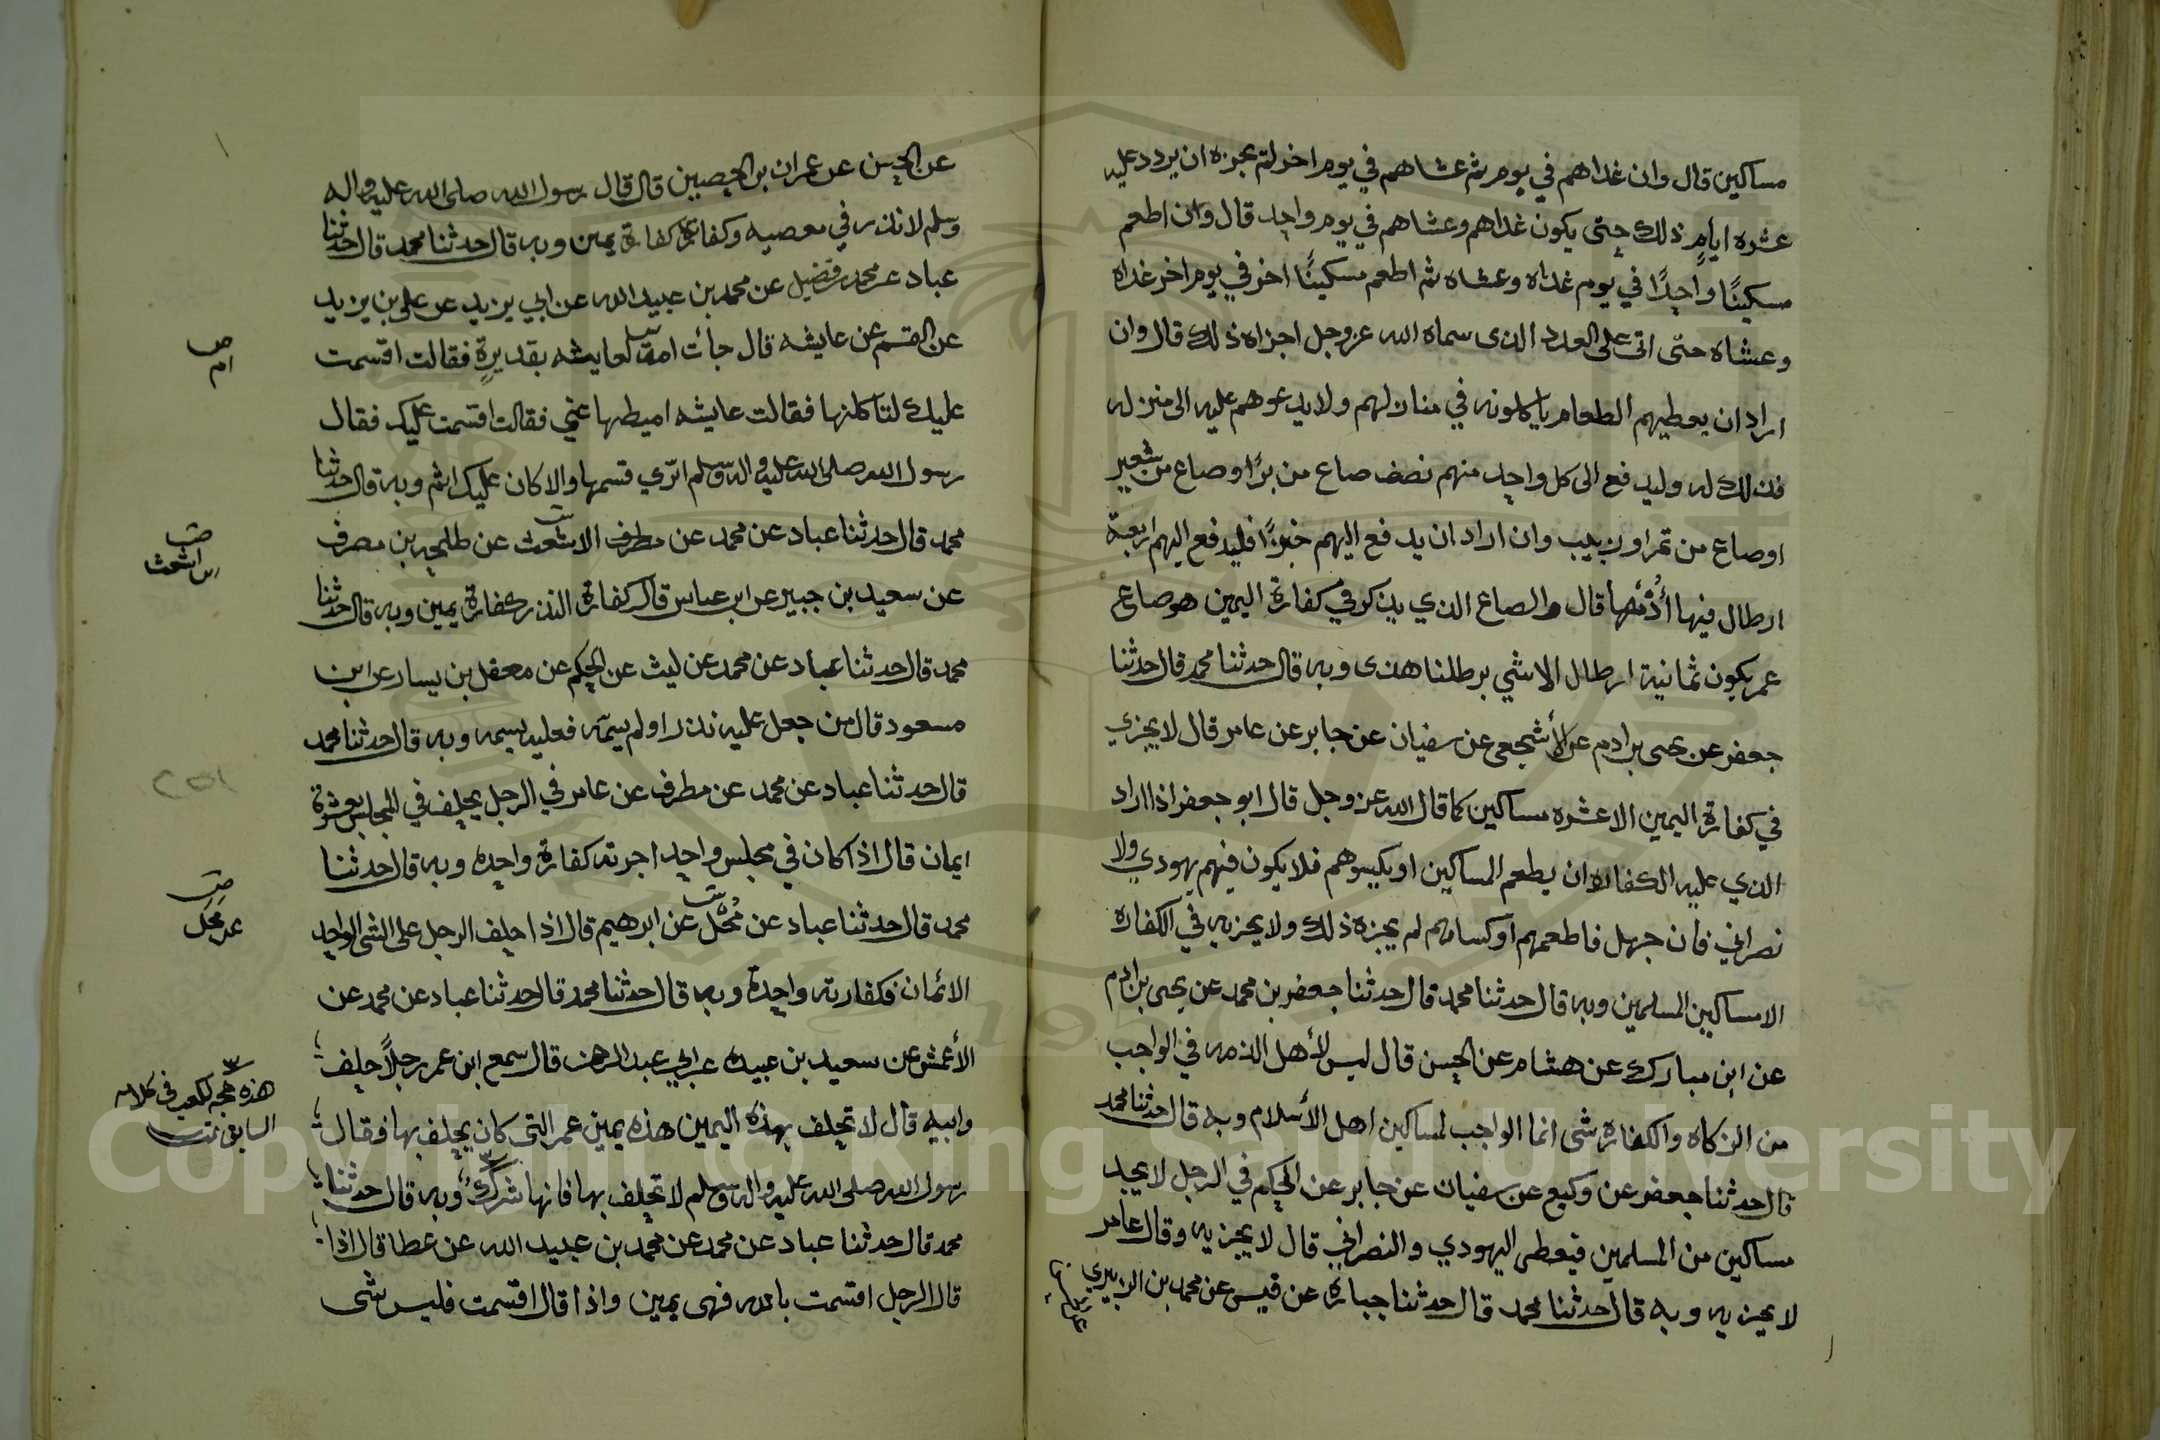 مساكين قال وان غداهم في يوم ثم عشاهم في يوم اخر لم يجزه ان يردد عليه
عشره ايام ذلك حتى يكون غداهم وعشاهم في يوم واحد قال وان اطعم
مسكينًا واحدًا في يوم غداه وعشاه ثم اطعم مسكينًا اخر في يوم اخر غداه
وعشاه حتى اتى على العدد الذى سماه الله عز وجل اجزاه ذلك قال وان
اراد ان يعطيهم الطعام ياكلونه في منازلهم ولا يدعوهم عليه الى منزله
فذلك له وليدفع الى كل واحد منهم نصف صاع من برًا وصاع من شعير
او صاع من تمر او زبيب وان اراد ان يدفع اليهم خبزًا فليدفع اليهم اربعة
ارطال فيها أُدُمُها قال والصاع الذي يذكر في كفارة اليمين هو صاع
عمر يكون ثمانية ارطال الا شي برطلنا هذى وبه قال حدثنا محمد قال حدثنا
جعفر عن يحيى بن ادم عن الأشجعي عن سفيان عن جابر عن عامر قال لا يجزي
في كفارة اليمين الا عشره مساكين كما قال الله عز وجل قال ابو جعفر اذا اراد
الذي عليه الكفاره ان يطعم المساكين او يكسوهم فلا يكون فيهم يهودي ولا
نصراني فان جهل فاطعمهم او كساهم لم يجزه ذلك ولا يجزيه في الكفاره
الا مساكين المسلمين وبه قال حدثنا محمد قال حدثنا جعفر بن محمد عن يحيى بن ادم
عن ابن مبارك عن هشام عن الحسن قال ليس لأهل الذمه في الواجب
من الزكاه والكفارة شى انما الواجب لمساكين اهل الأسلام وبه قال حدثنا محمد
قال حدثنا جعفر عن وكيع عن سفيان عن جابر عن الحكم في الرجل لا يجد
مساكين من المسلمين فيعطى اليهودي والنصراني قال لا يجزيه وقال عامر
لا يجزيه وبه قال حدثنا محمد قال حدثنا جباره عن قيس عن محمد بن الزبيري
عن الحسن عن عمران بن الحصين قال قال رسول الله صلى الله عليه واله
وسلم لا نذر في معصيه وكفارتها كفارة يمين وبه قال حدثنا محمد قال حدثنا
عباد عن محمد بن فضيل عن محمد بن عبيد الله عن ابي يزيد عن على بن يزيد
عن القسم عن عايشه قال جأت امة لعايشه بقديرةٍ فقالت اقسمت
عليك لتاكلنها فقالت عايشه اميطها عني فقالت اقسمت عليك فقال
رسول الله صلى الله عليه واله وسلم ابرّي قسمها والا كان عليك اثم وبه قال حدثنا
محمد قال حدثنا عباد عن محمد عن مطرف الاشعث عن طلحه بن مصرف
عن سعيد بن جبير عن ابن عباس قال كفارة النذر كفارة يمين وبه قال حدثنا
محمد قال حدثنا عباد عن محمد عن ليث عن الحكم عن معقل بن يسار عن ابن
مسعود قال من جعل عليه نذرا ولم يسمّه فعليه يسمه وبه قال حدثنا محمد
قال حدثنا عباد عن محمد عن مطرف عن عامر في الرجل يحلف في المجلس بعشرة
ايمان قال اذا كان في مجلس واحد اجرته كفارة واحده وبه قال حدثنا
محمد قال حدثنا عباد عن مُحْل عن ابرهيم قال اذا حلف الرجل على الشى الواحد
الائمان فكفارته واحدة وبه قال حدثنا محمد قال حدثنا عباد عن محمد عن
الأعمش عن سعيد بن عبيده عن ابي عبد الرحمن قال سمع ابن عمر رجلاً حلف
وابيه قال لا تحلف بهذه اليمين هذه يمين عمر التى كان يحلف بها فقال
رسول الله صلى الله عليه واله وسلم لا تحلف بها فانها شرك وبه قال حدثنا
محمد قال حدثنا عباد عن محمد عن محمد بن عبيد الله عن عطا قال اذا
قال الرجل اقسمت بالله فهى يمين واذا قال اقسمت فليس شى
ام
اشعث
عن محل
هذه حجه لكعب فى كلامه
السابق تمت
Copyright © King Saud University
1957